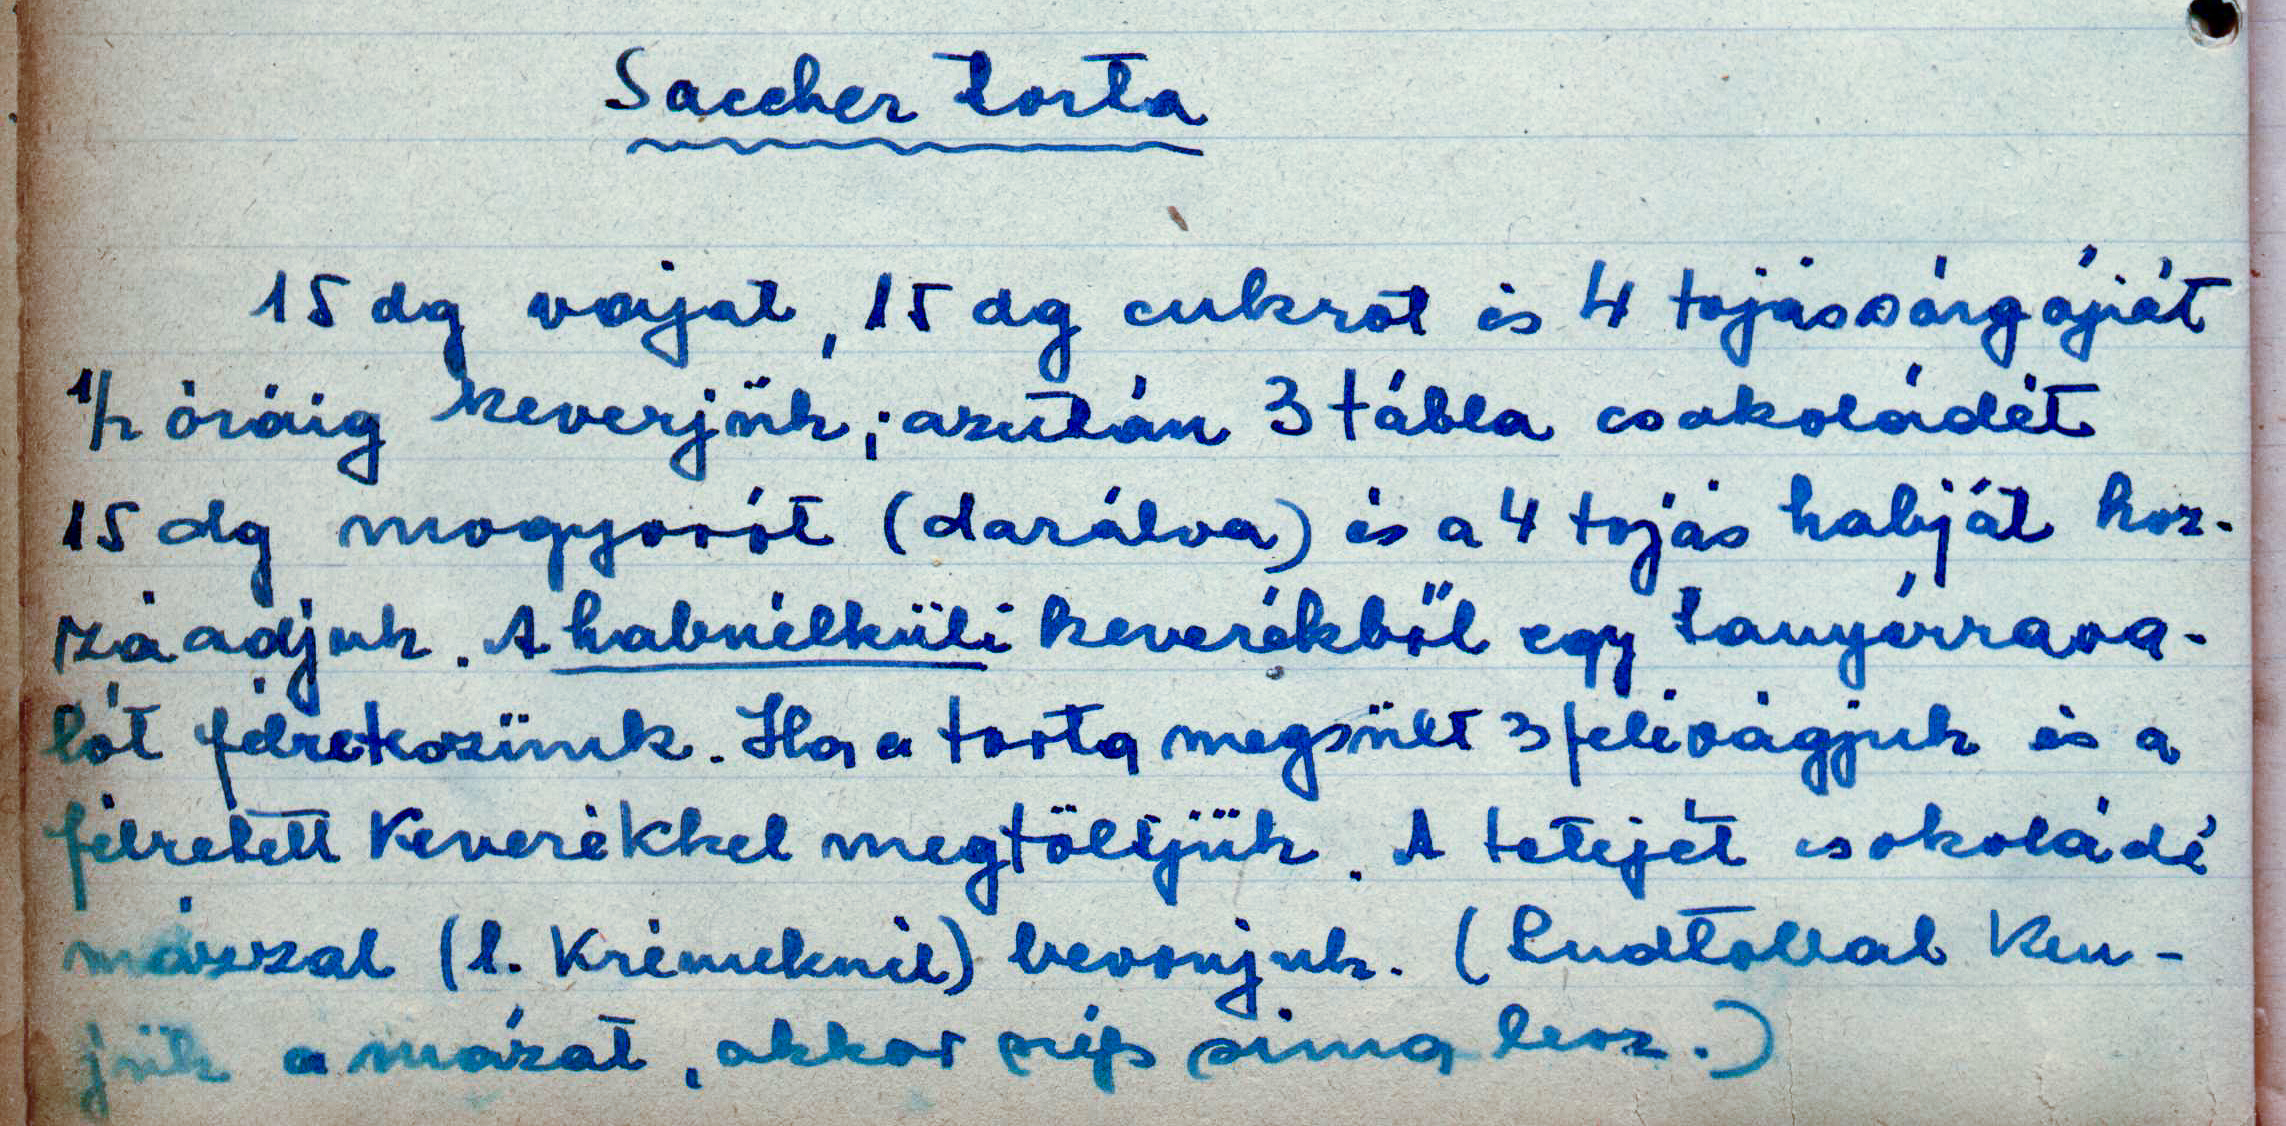 Saccher torta
15 dg vajat, 15 dg cukrot és 4 tojássárgáját
1/2 óráig keverjük; azután 3 tábla csokoládét
15 dg mogyorót (darálva) és a 4 tojás habját hoz-
záadjuk. A habnélküli keverékből egy tányérrava-
lót félreteszünk. Ha a torta megsült 3 felévágjuk és a
félretett keverékkel megtöltjük. A tetejét csokoládé
mázzal (l. Krémeknél) bevonjuk. (Ludtollal ken-
jük a mázat, akkor szép sima lesz.)